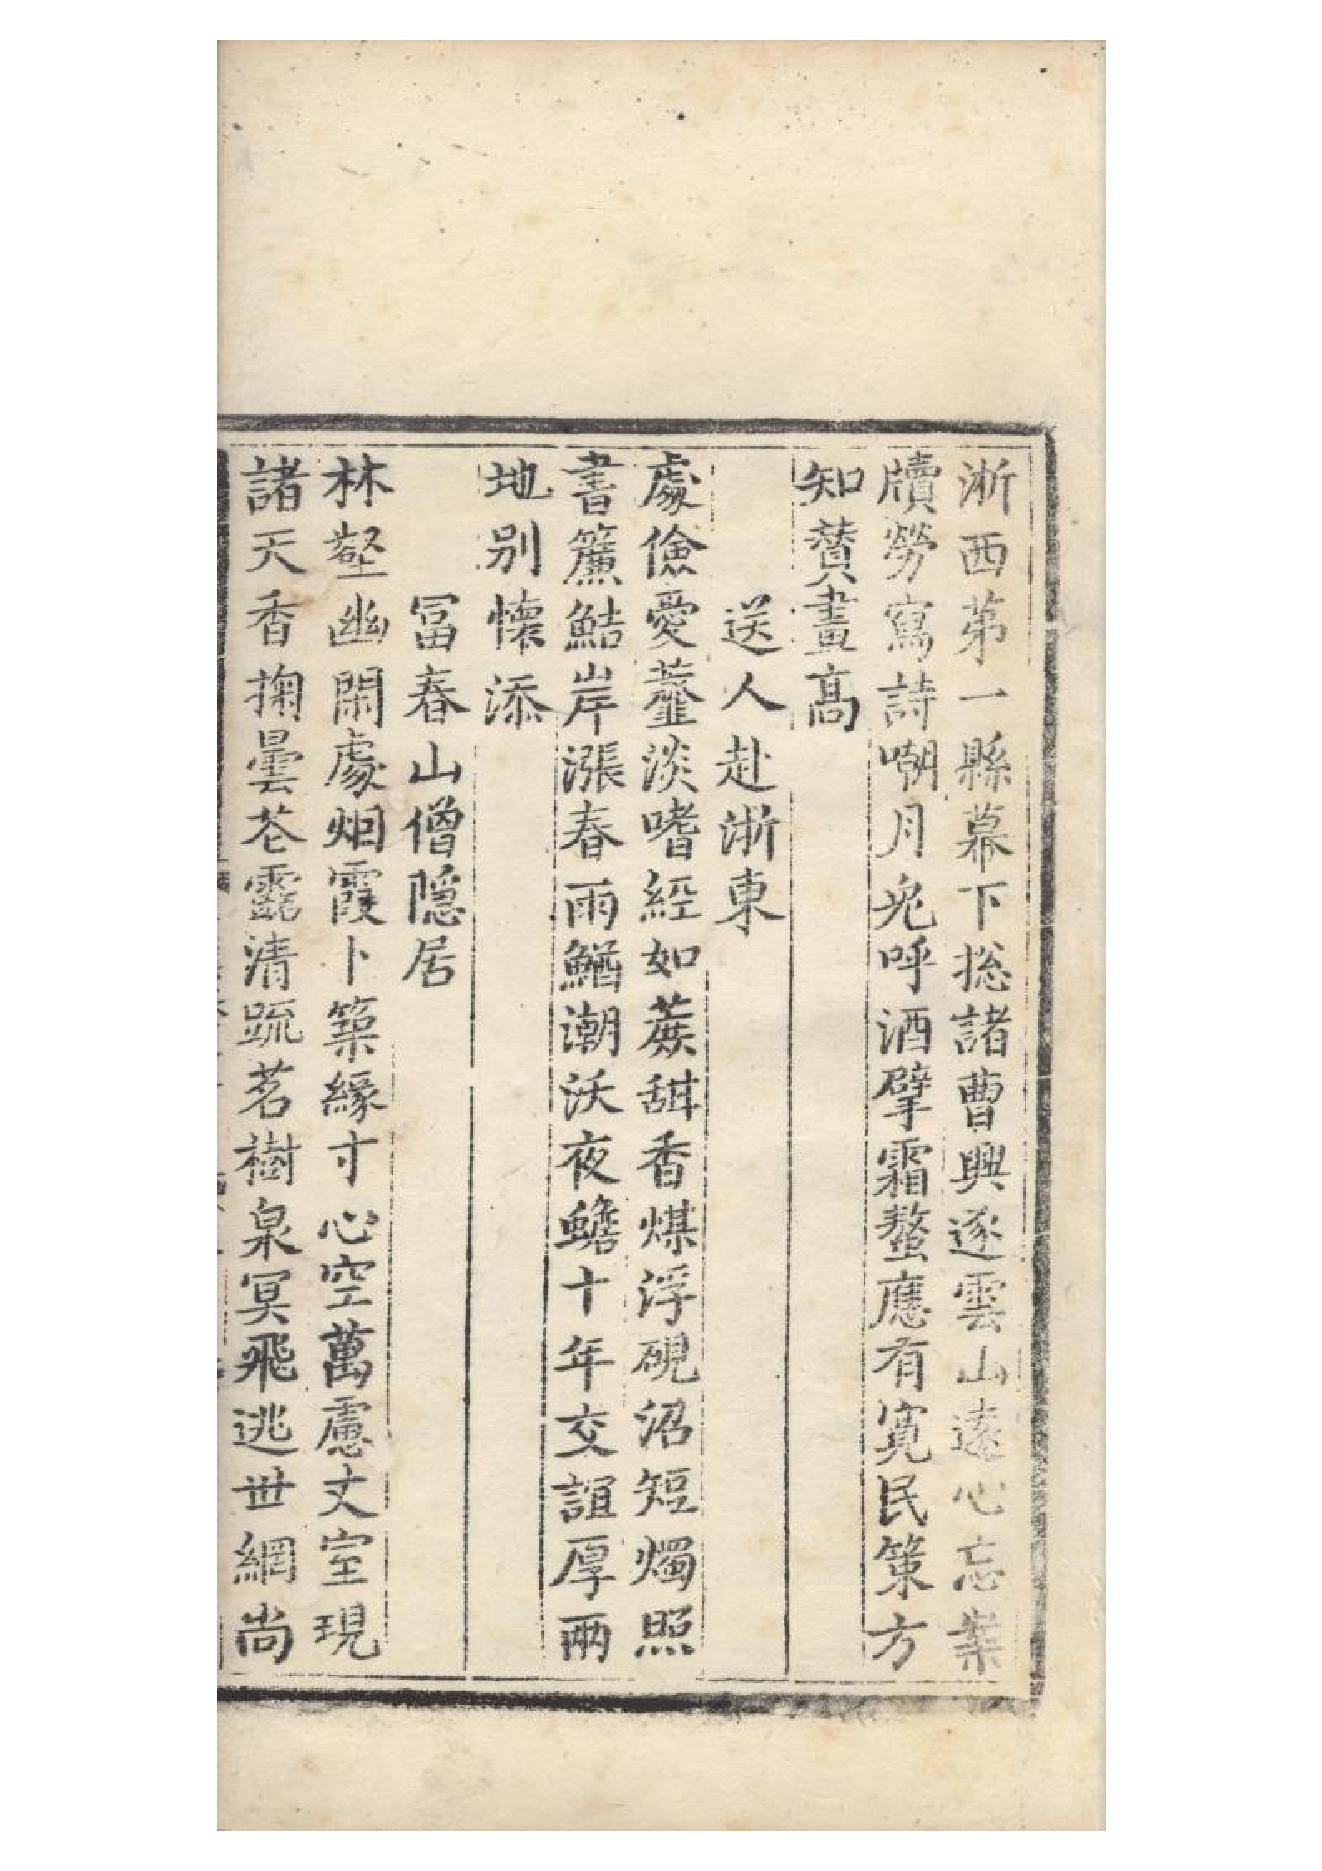 淅西第一縣幕下捴諸曹興逐雲山遠心忘案
牘勞寫詩嘲月兎呼酒擘霜螯應有寬民策方
知贊畫高
送人赴淛東
處儉愛虀淡嗜經如蔗甜香煤浮硯沼短燭照
書簾鮚岸漲春雨鰌潮沃夜蟾十年交誼厚兩
地别懷添
冨春山僧隠居
林壑幽閑處烟霞卜築緣寸心空萬慮丈室現
諸天香掬曇花露清䟽茗樹泉冥飛逃世網尚